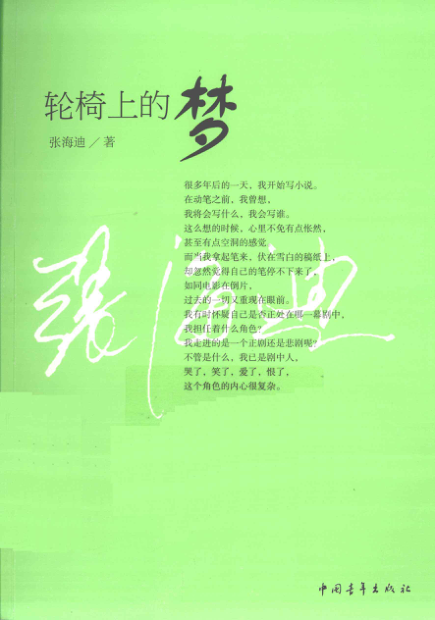 轮椅上的梦
张海迪／著
很多年后的一天，我开始写小说。
在动笔之前，我曾想，
我将会写什么，我会写谁。
这么想的时候，心里不免有点怅然，
甚至有点空洞的感觉。
而当我拿起笔来，伏在雪白的稿纸上，
却忽然觉得自己的笔停不下来了，
如同电影在倒片，
过去的一切又重现在眼前。
我有时怀疑自己是否正处在哪一幕剧中，
我担任着什么角色？
我走进的是一个正剧还是悲剧呢？
不管是什么，我已是剧中人，
哭了，笑了，爱了，恨了，
这个角色的内心很复杂。
张海迪
中国青年出版社